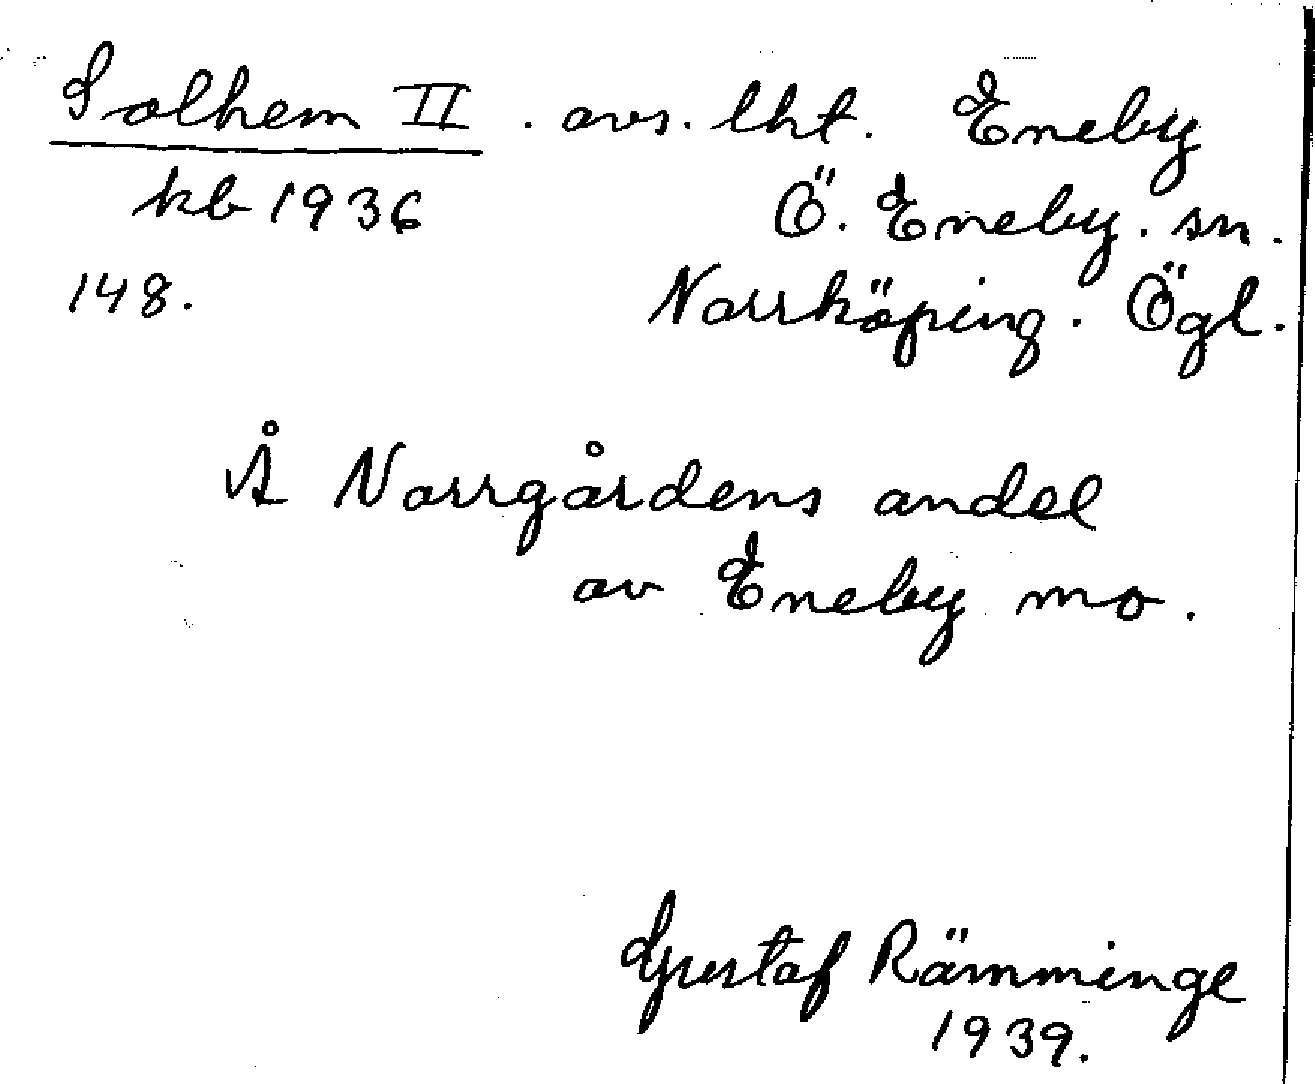 Solhem II . avs. lht. Eneby
kb 1936 Ö. Eneby. sn.
148. Norrköping. Ögl.
Å Norrgårdens andel
av Eneby mo.
Gustaf Rämminge
1939.